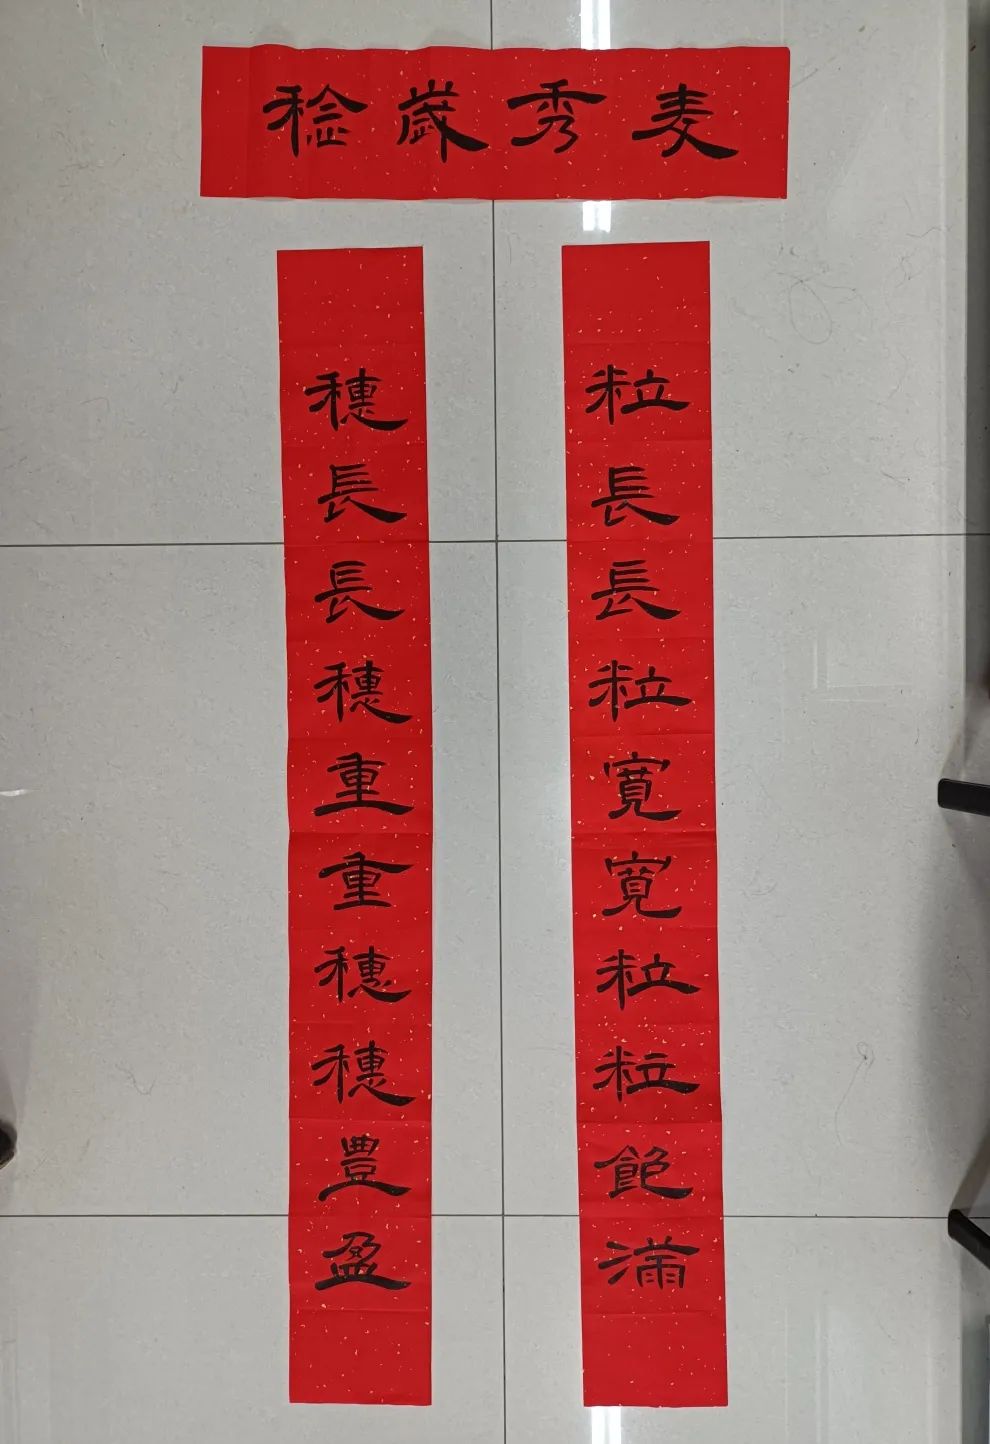 麦秀歲稔
粒長長粒寬寬粒粒飽滿
穗長長穗重重穗穗豐盈